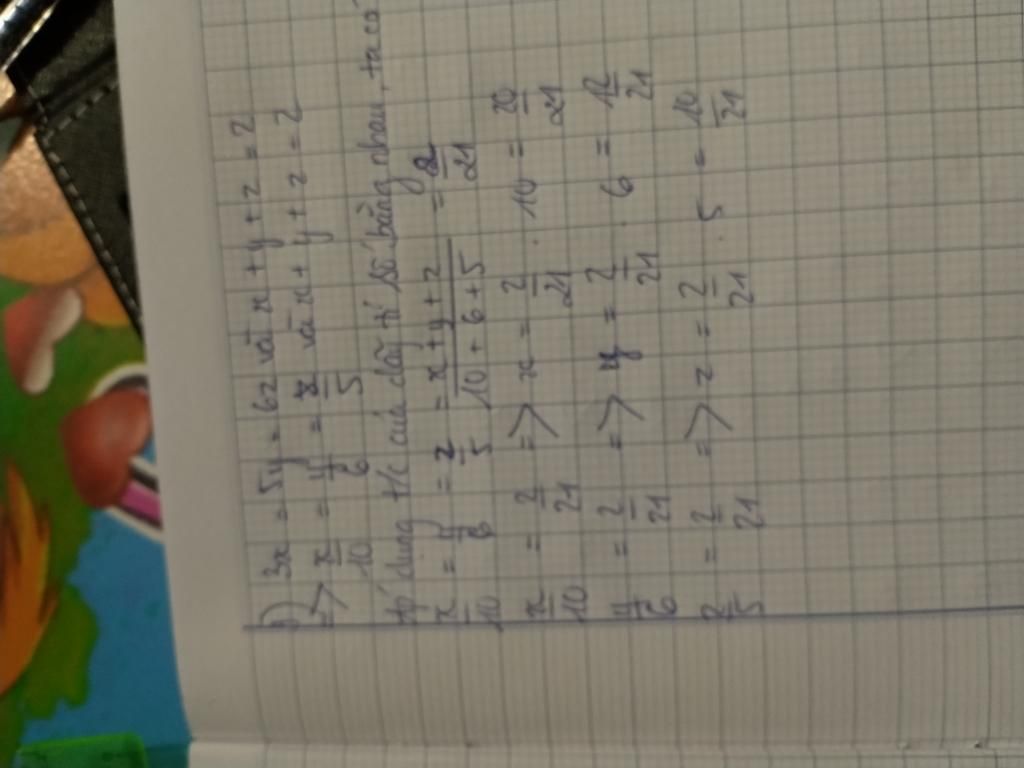 a) 3x = 5y = 6z và x + y + z = 2
=> x/10 = y/6 = z/5 và x + y + z = 2
Áp dụng t/c của dãy tỉ số bằng nhau, ta có
x/10 = y/6 = z/5 = (x + y + z)/(10 + 6 + 5) = 2/21
x/10 = 2/21 => x = 2/21 . 10 = 20/21
y/6 = 2/21 => y = 2/21 . 6 = 12/21
z/5 = 2/21 => z = 2/21 . 5 = 10/21